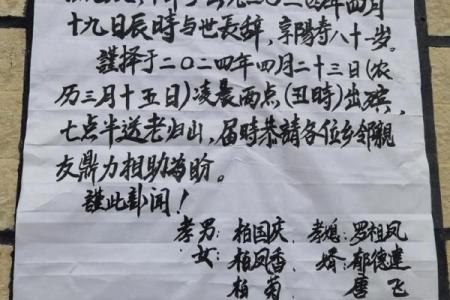 于公元二〇二四年四月
十九日辰時与世長辞，享陽寿八十一岁。
謹择于二〇二四年四月二十三日(农
历三月十五日)凌晨两点(丑時)出殡，
七点半送老归山，届時恭請各位乡邻親
友鼎力相助為盼。
謹此訃闻！
孝男：柏国庆、孝媳：罗祖凤
女：柏凤香、婿：郁德建
柏菊 唐飞